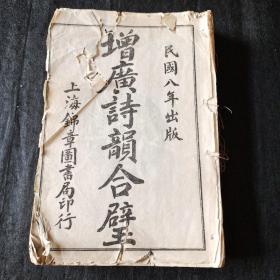 民國八年出版
增廣詩韻合璧
上海錦章圖書局印行